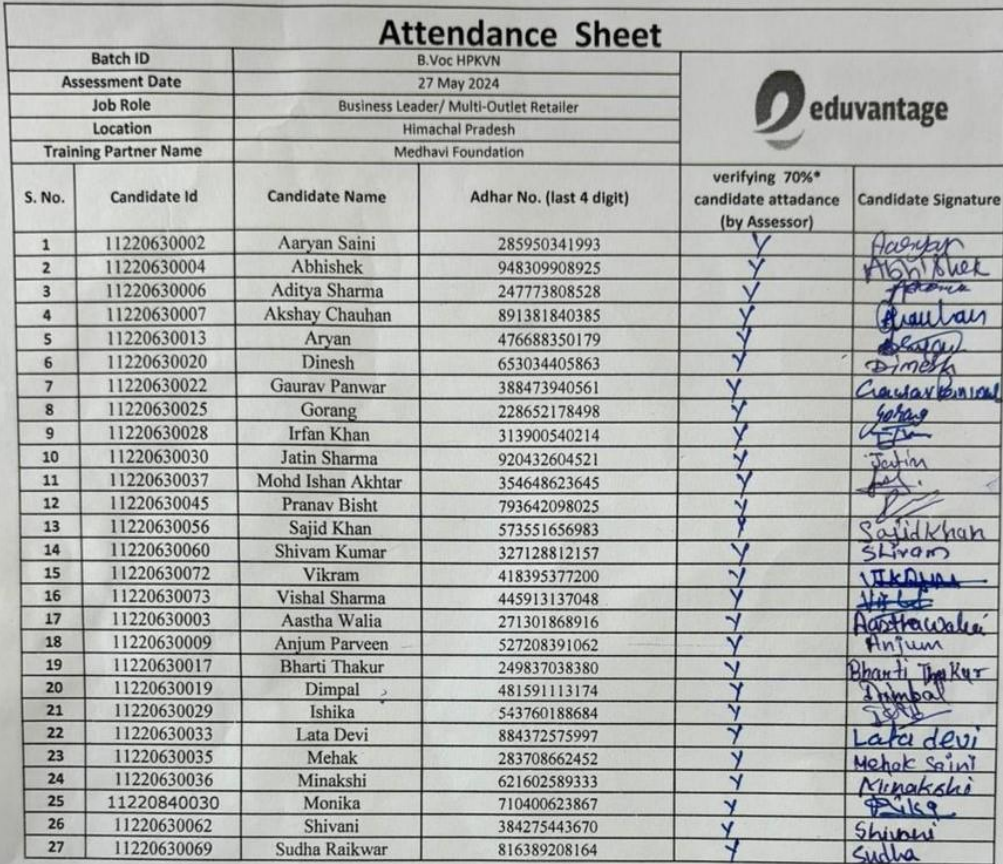 Attendance Sheet
Batch ID B.Voc HPKVN
Assessment Date 27 May 2024
Job Role Business Leader/ Multi-Outlet Retailer
Location Himachal Pradesh
Training Partner Name Medhavi Foundation
eduvantage
S. No. Candidate Id Candidate Name Adhar No. (last 4 digit) verifying 70%* candidate attadance (by Assessor) Candidate Signature
1 11220630002 Aaryan Saini 285950341993 Y Aaryan
2 11220630004 Abhishek 948309908925 Y Abhishek
3 11220630006 Aditya Sharma 247773808528 Y
4 11220630007 Akshay Chauhan 891381840385 Y Chauhan
5 11220630013 Aryan 476688350179 Y
6 11220630020 Dinesh 653034405863 Y Dinesh
7 11220630022 Gaurav Panwar 388473940561 Y Gaurav
8 11220630025 Gorang 228652178498 Y Gorang
9 11220630028 Irfan Khan 313900540214 Y
10 11220630030 Jatin Sharma 920432604521 Y Jatin
11 11220630037 Mohd Ishan Akhtar 354648623645 Y
12 11220630045 Pranav Bisht 793642098025 Y
13 11220630056 Sajid Khan 573551656983 Y Sajid Khan
14 11220630060 Shivam Kumar 327128812157 Y Shivam
15 11220630072 Vikram 418395377200 Y
16 11220630073 Vishal Sharma 445913137048 Y
17 11220630003 Aastha Walia 271301868916 Y Aastha Walia
18 11220630009 Anjum Parveen 527208391062 Y Anjum
19 11220630017 Bharti Thakur 249837038380 Y Bharti Thakur
20 11220630019 Dimpal 481591113174 Y Dimpal
21 11220630029 Ishika 543760188684 Y
22 11220630033 Lata Devi 884372575997 Y Lata devi
23 11220630035 Mehak 283708662452 Y Mehak Saini
24 11220630036 Minakshi 621602589333 Y Minakshi
25 11220840030 Monika 710400623867 Y
26 11220630062 Shivani 384275443670 Y Shivani
27 11220630069 Sudha Raikwar 816389208164 Y Sudha